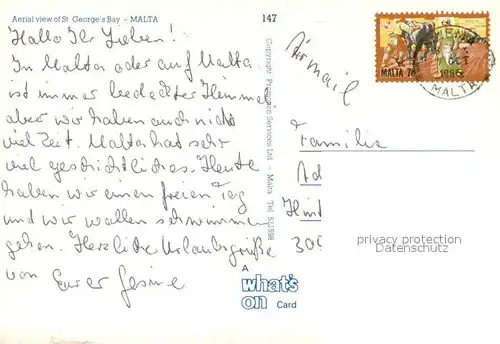 Aerial view of St George's Bay - MALTA
147
Hallo Ihr Lieben!
In Malta oder auf Malta
ist immer bedeckter Himmel
aber wir haben auch nicht
viel Zeit. Malta hat sehr
viel geschichtliches. Heute
haben wir einen freien Tag
und wir wollen schwimmen
gehen. Herzliche Urlaubsgrüße
von Eurer Gesine
Copyright Promotion Services Ltd - Malta Tel 511598
A
what's
on Card
Air mail
MALTA 7c
OCT
1986
MALTA
Familie
Ad
Hint
300
privacy protection
Datenschutz